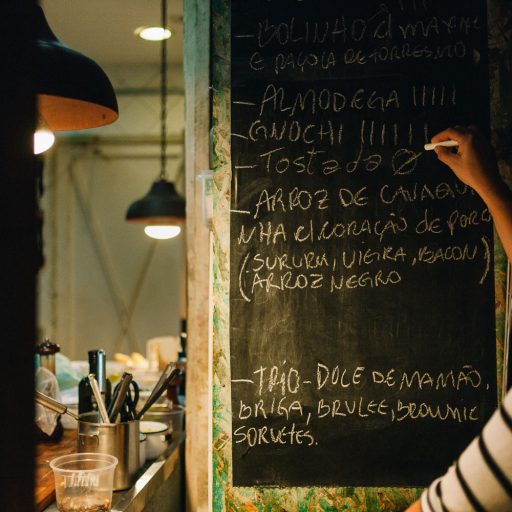 - BOLINHO d MAXIXE
E PAÇOCA DE TORRESMO
- ALMODEGA IIIII
- GNOCHI IIIIII
- TOSTADA Ø
- ARROZ DE
NHA C/CORAÇÃO DE PORC
(SURURU, VIEIRA, BACON)
(ARROZ NEGRO
- TRIO-DOCE DE MAMÃO,
BRIGA, BRULEE, BROWNIE
SORVETES.